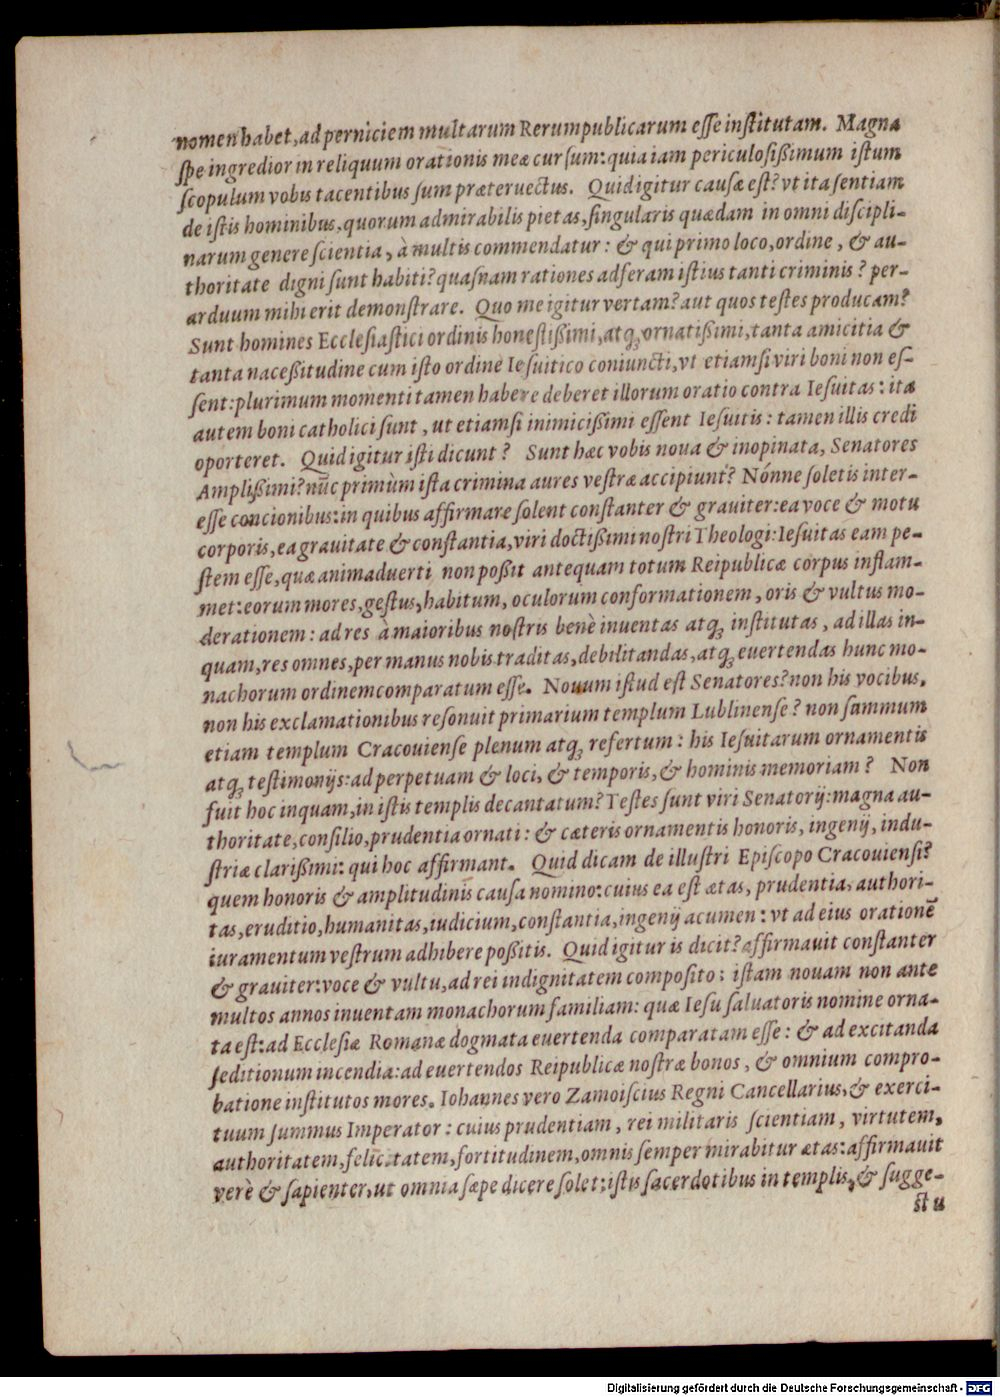 nomen habet, ad perniciem multarum Rerumpublicarum eſſe inſtitutam. Magna
ſpe ingredior in reliquum orationis meæ curſum: quia iam periculoſißimum iſtum
ſcopulum vobis tacentibus ſum præteruectus. Quid igitur cauſæ eſt? vt ita ſentiam
de iſtis hominibus, quorum admirabilis pietas, ſingularis quædam in omni diſcipli-
narum genere ſcientia, à multis commendatur: & qui primo loco, ordine, & au-
thoritate digni ſunt habiti? quaſnam rationes adferam iſtius tanti criminis? per-
arduum mihi erit demonſtrare. Quo me igitur vertam? aut quos teſtes producam?
Sunt homines Eccleſiaſtici ordinis honeſtißimi, atq; ornatißimi, tanta amicitia &
tanta naceßitudine cum iſto ordine Ieſuitico coniuncti, vt etiamſi viri boni non eſ-
ſent: plurimum momenti tamen habere deberet illorum oratio contra Ieſuitas: ita
autem boni catholici ſunt, ut etiamſi inimicißimi eſſent Ieſuitis: tamen illis credi
oporteret. Quid igitur iſti dicunt? Sunt hæc vobis noua & inopinata, Senatores
Amplißimi? nūc primùm iſta crimina aures veſtræ accipiunt? Nónne ſoletis inter-
eſſe concionibus: in quibus affirmare ſolent conſtanter & grauiter: ea voce & motu
corporis, ea grauitate & conſtantia, viri doctißimi noſtri Theologi: Ieſuitas eam pe-
ſtem eſſe, quæ animaduerti non poßit antequam totum Reipublicæ corpus inflam-
met: eorum mores, geſtus, habitum, oculorum conformationem, oris & vultus mo-
derationem: ad res à maioribus noſtris benè inuentas atq; inſtitutas, ad illas in-
quam, res omnes, per manus nobis traditas, debilitandas, atq; euertendas hunc mo-
nachorum ordinem comparatum eſſe. Nouum iſtud eſt Senatores? non his vocibus,
non his exclamationibus reſonuit primarium templum Lublinenſe? non ſummum
etiam templum Cracouienſe plenum atq; refertum: his Ieſuitarum ornamentis
atq; teſtimonijs: ad perpetuam & loci, & temporis, & hominis memoriam? Non
fuit hoc inquam, in iſtis templis decantatum? Teſtes ſunt viri Senatorij: magna au-
thoritate, conſilio, prudentia ornati: & cæteris ornamentis honoris, ingenij, indu-
ſtriæ clarißimi: qui hoc affirmant. Quid dicam de illuſtri Epiſcopo Cracouienſi?
quem honoris & amplitudinis cauſa nomino: cuius ea eſt ætas, prudentia, authori-
tas, eruditio, humanitas, iudicium, conſtantia, ingenij acumen: vt ad eius orationē
iuramentum veſtrum adhibere poßitis. Quid igitur is dicit? affirmauit conſtanter
& grauiter: voce & vultu, ad rei indignitatem compoſito: iſtam nouam non ante
multos annos inuentam monachorum familiam: quæ Ieſu ſaluatoris nomine orna-
ta eſt: ad Eccleſiæ Romanæ dogmata euertenda comparatam eſſe: & ad excitanda
ſeditionum incendia: ad euertendos Reipublicæ noſtræ bonos, & omnium compro-
batione inſtitutos mores. Iohannes vero Zamoiſcius Regni Cancellarius, & exerci-
tuum ſummus Imperator: cuius prudentiam, rei militaris ſcientiam, virtutem,
authoritatem, felicitatem, fortitudinem, omnis ſemper mirabitur ætas: affirmauit
verè & ſapienter, ut omnia ſæpe dicere ſolet: iſtis ſacerdotibus in templis, & ſugge-
ſtu
Digitalisierung gefördert durch die Deutsche Forschungsgemeinschaft - DFG